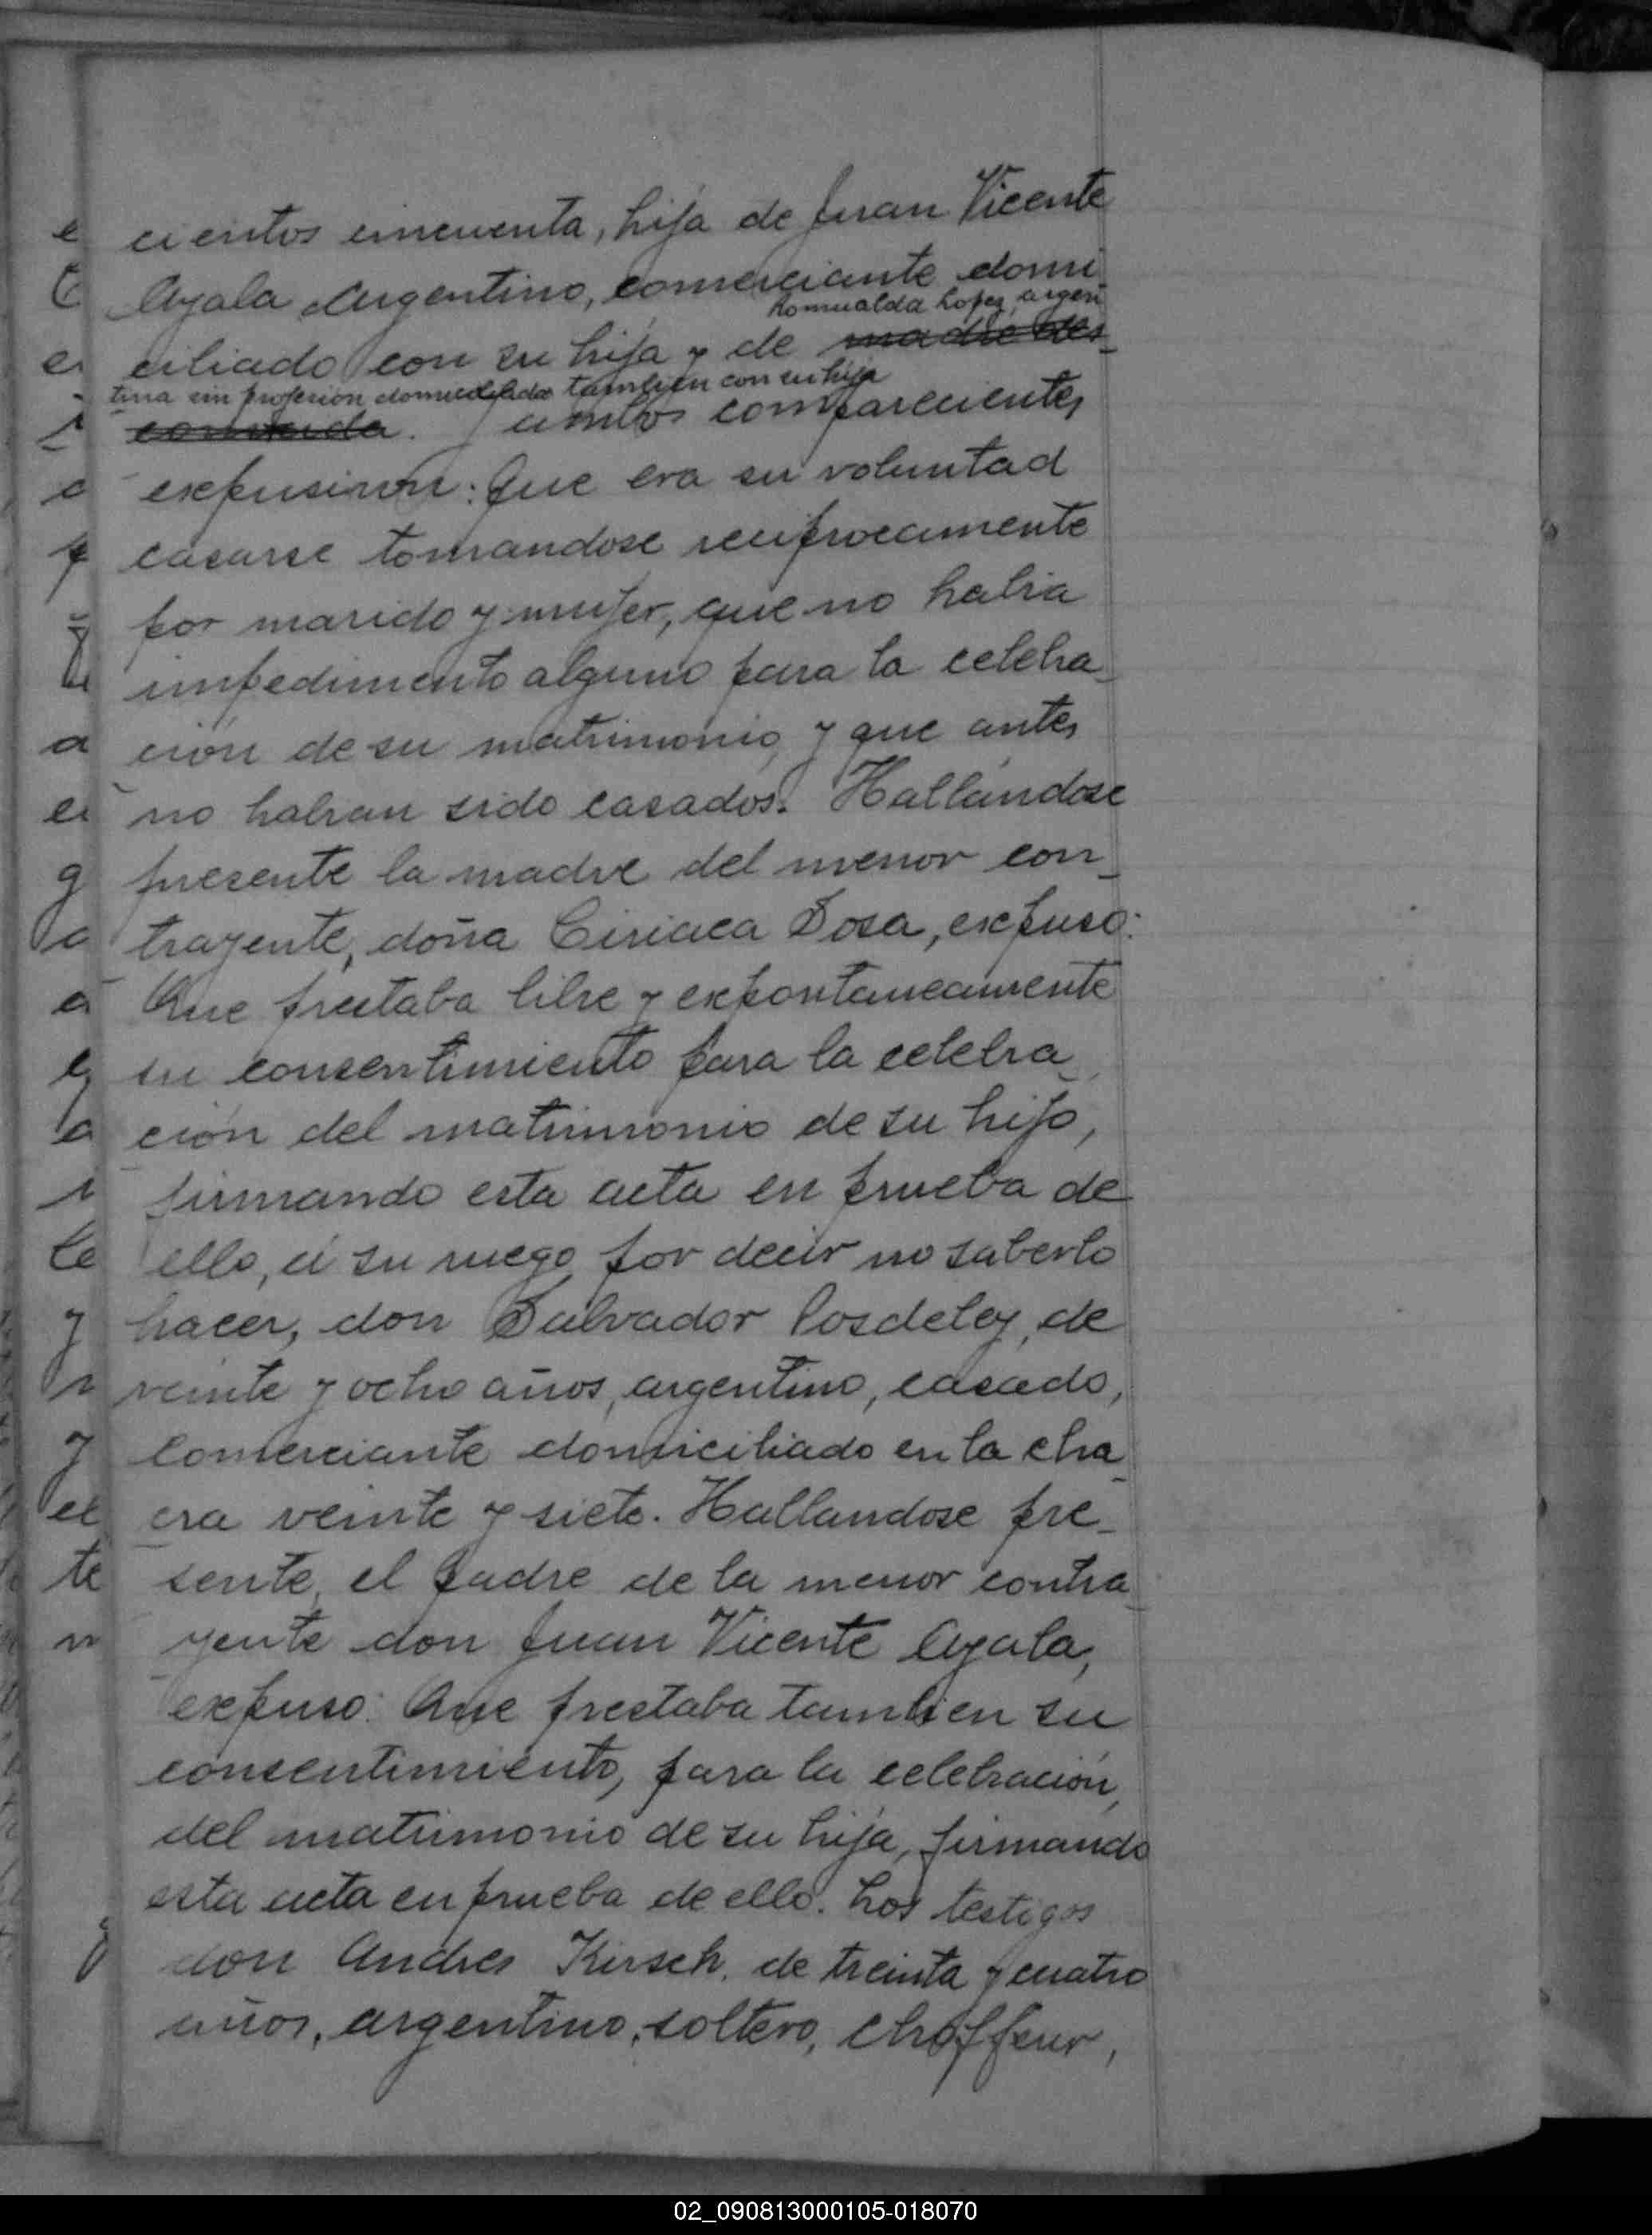 cientos cincuenta, hija de Juan Vicente
Ayala Argentino, comerciante domi
Romualda Lopez, argen
ciliado con su hija y de madre des
tina sin profesion domiciliada tambien con su hija
conocida. Ambos comparecientes
expusiron: Que era su voluntad
casarse tomandose reciprocamente
por marido y mujer, que no habia
impedimento alguno para la celebra_
ción de su matrimonio, y que antes
no habian sido casados. Hallándose
presente la madre del menor con_
trayente, doña Ciriaca Sosa, expuso:
Que prestaba libre y expontaneamente
su consentimiento para la celebra_
ción del matrimonio de su hijo,
firmando esta acta en prueba de
ello, á su ruego por decir no saberlo
hacer, don Salvador de
veinte y ocho años, argentino, casado,
comerciante domiciliado en la cha_
cra veinte y siete. Hallandose pre_
sente, el padre de la menor contra_
yente don Juan Vicente Ayala,
expuso: Que prestaba tambien su
consentimiento, para la celebración,
del matrimonio de su hija, firmando
esta acta en prueba de ello. Los testigos
don Andres Kirsch, de treinta y cuatro
años, argentino, soltero, choffeur,
02_090813000105-018070